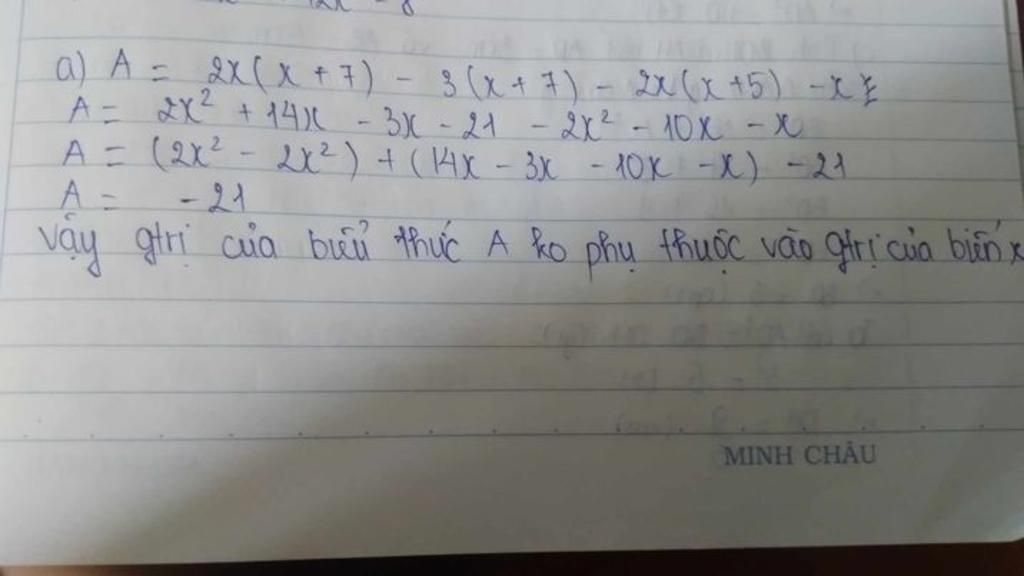 a) A = 2x(x + 7) - 3(x + 7) - 2x(x+5) - x
A = 2x² + 14x - 3x - 21 - 2x² - 10x - x
A = (2x² - 2x²) + (14x - 3x - 10x - x) - 21
A = - 21
Vậy gtrị của biểu thức A ko phụ thuộc vào gtrị của biến x
MINH CHÂU